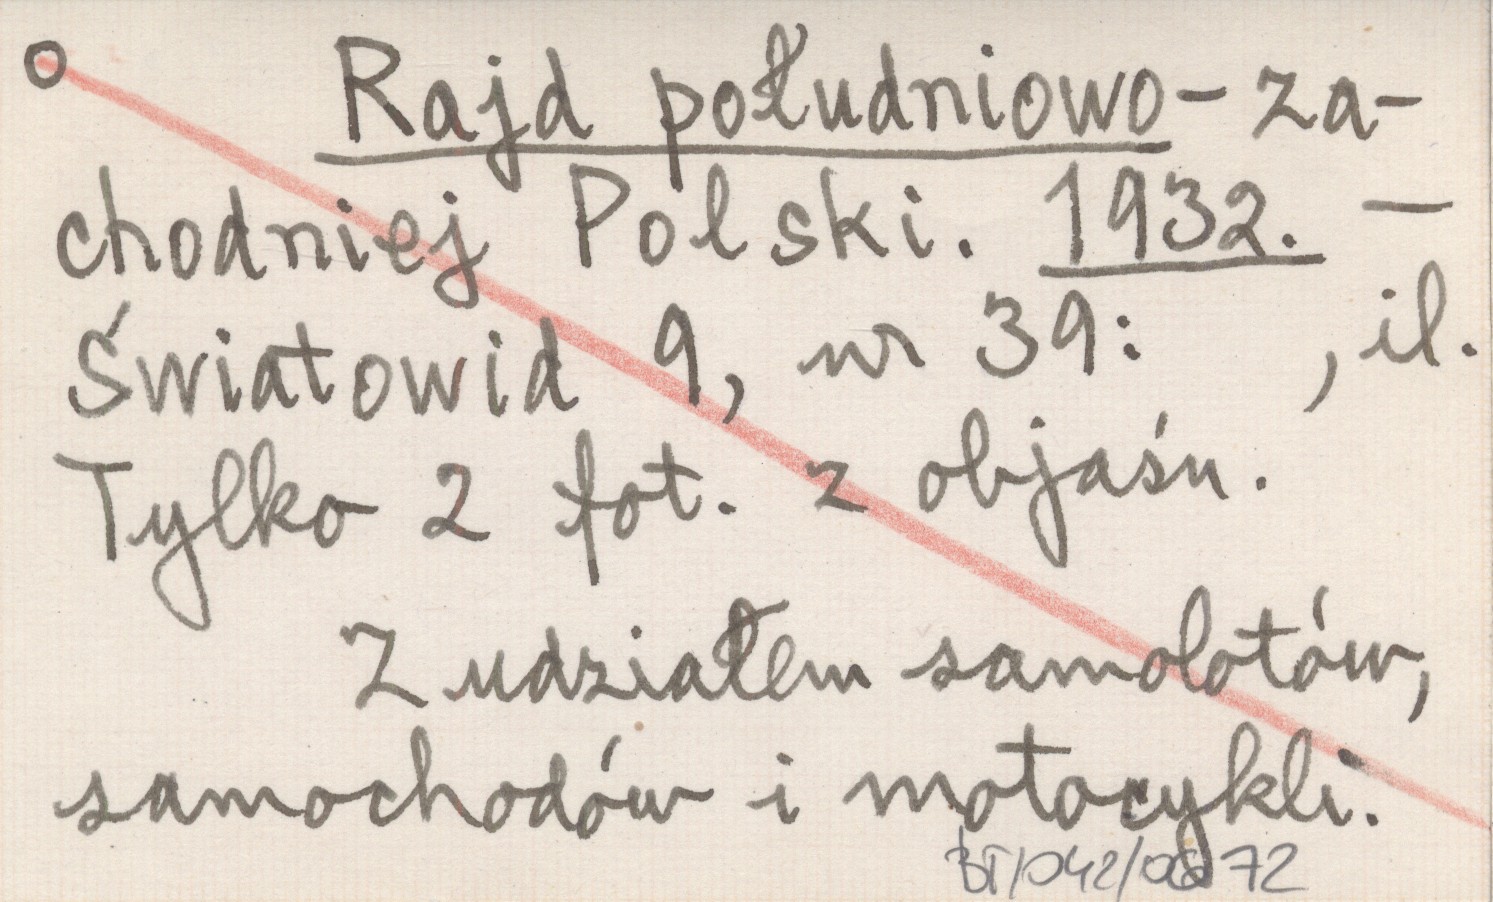 Rajd południowo-za-
chodniej Polski. 1932. —
Światowid 9, nr 39: , il.
Tylko 2 fot. z objaśn.
Z udziałem samolotów,
samochodów i motocykli.
BT/042/06 72